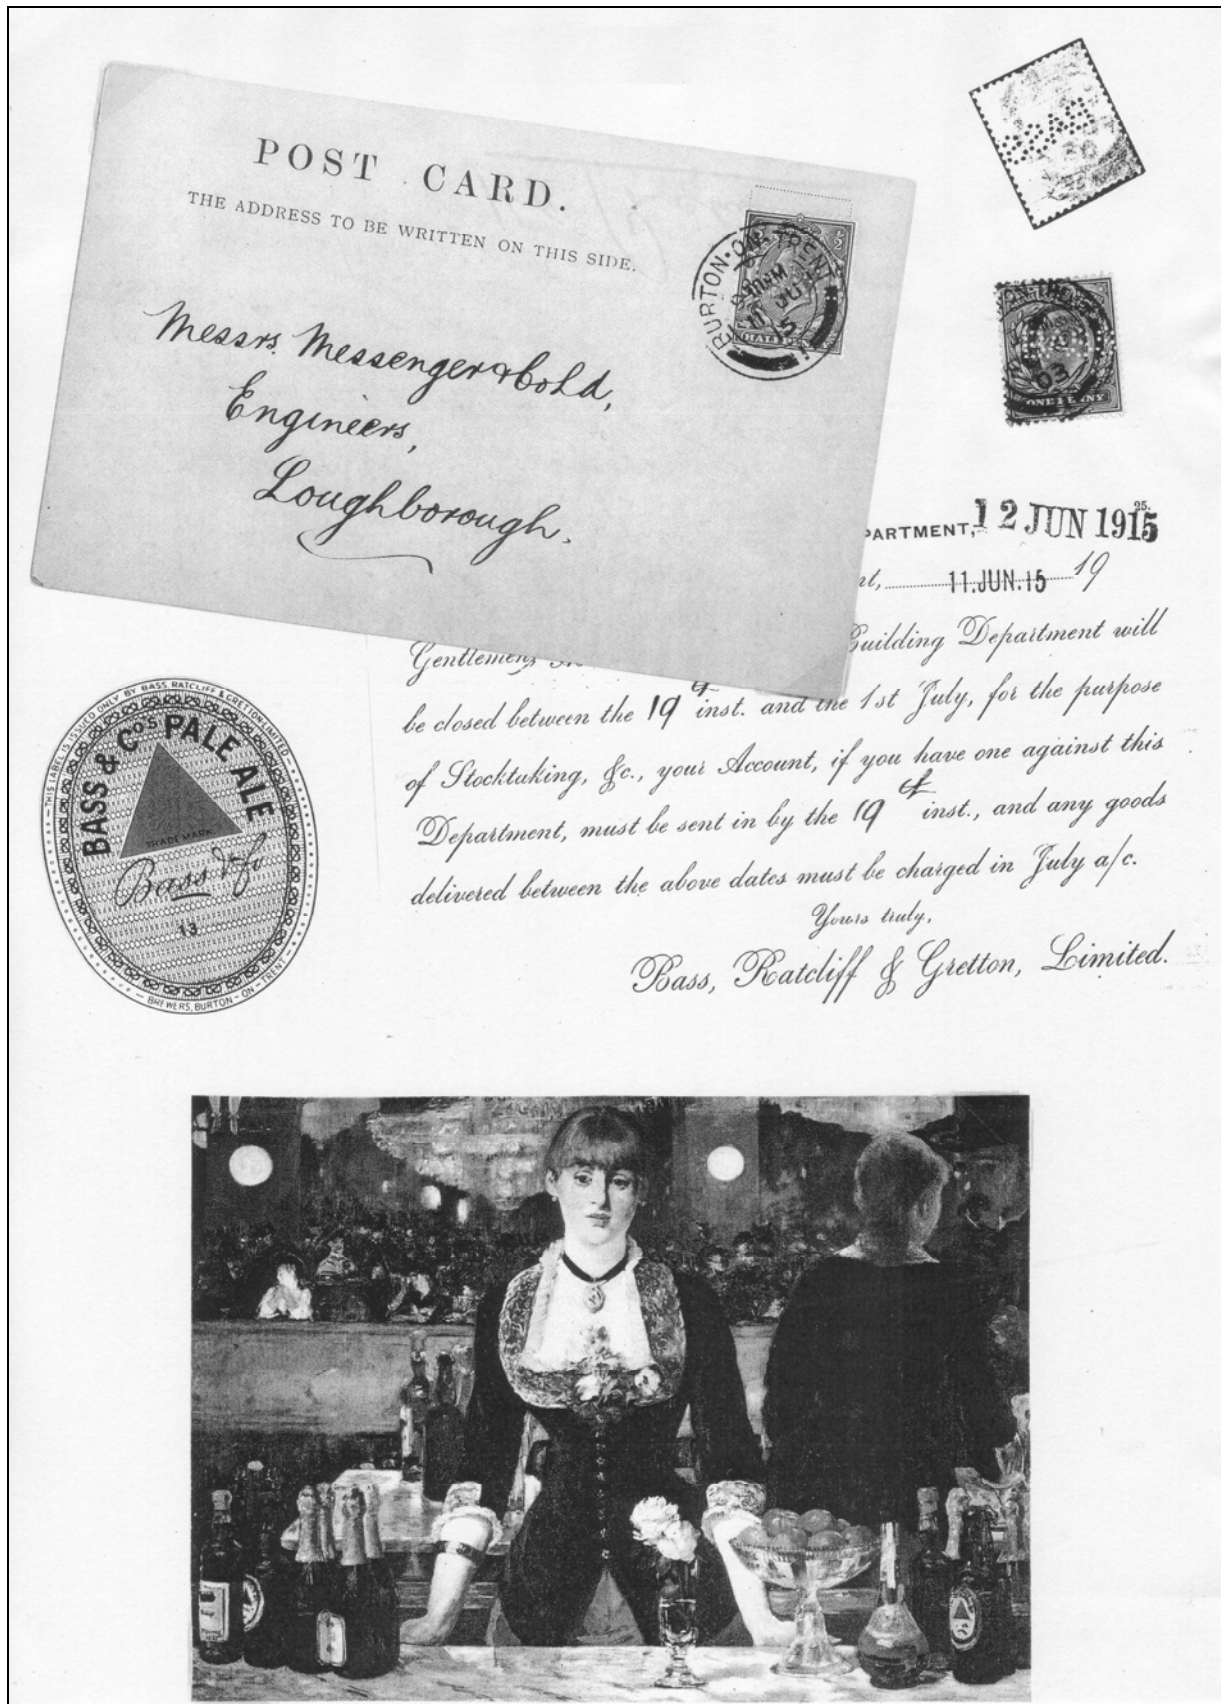 POST CARD.
THE ADDRESS TO BE WRITTEN ON THIS SIDE.
BURTON-ON-TRENT
JU
15
HALFPENNY
Messrs. Messenger & Co Ld,
Engineers,
Loughborough.
BASS
03
ONE PENNY
PARTMENT, 12 JUN 1915
25.
nt, 11.JUN.15 19
Gentlemen, Building Department will
be closed between the 19th inst. and the 1st July, for the purpose
of Stocktaking, &c., your Account, if you have one against this
Department, must be sent in by the 19th inst., and any goods
delivered between the above dates must be charged in July a/c.
Yours truly,
Bass, Ratcliff & Gretton, Limited.
THIS LABEL IS ISSUED ONLY BY BASS RATCLIFF & GRETTON LIMITED
BASS & Co's PALE ALE
TRADE MARK
Bass & Co
13
BREWERS, BURTON-ON-TRENT